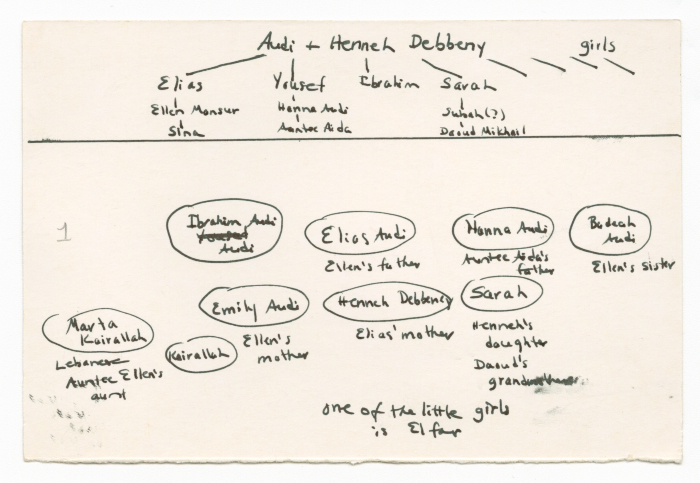 Audi + Henneh Debbeny girls
Elias Yousef Ibrahim Sarah
Ellen Mansur Hanna Audi Subah(?)
Sina Auntee Aida Daoud Mikhail
1
Ibrahim Audi
Yousef
Audi
Elias Audi
Ellen's father
Hanna Audi
Auntee Aida's
father
Badeah
Audi
Ellen's sister
Marta
Kairallah
Lebanese
Auntee Ellen's
aunt
Kairallah
Emily Audi
Ellen's
mother
Henneh Debbeney
Elias' mother
Sarah
Henneh's
daughter
Daoud's
grandmother
one of the little girls
is Elfar